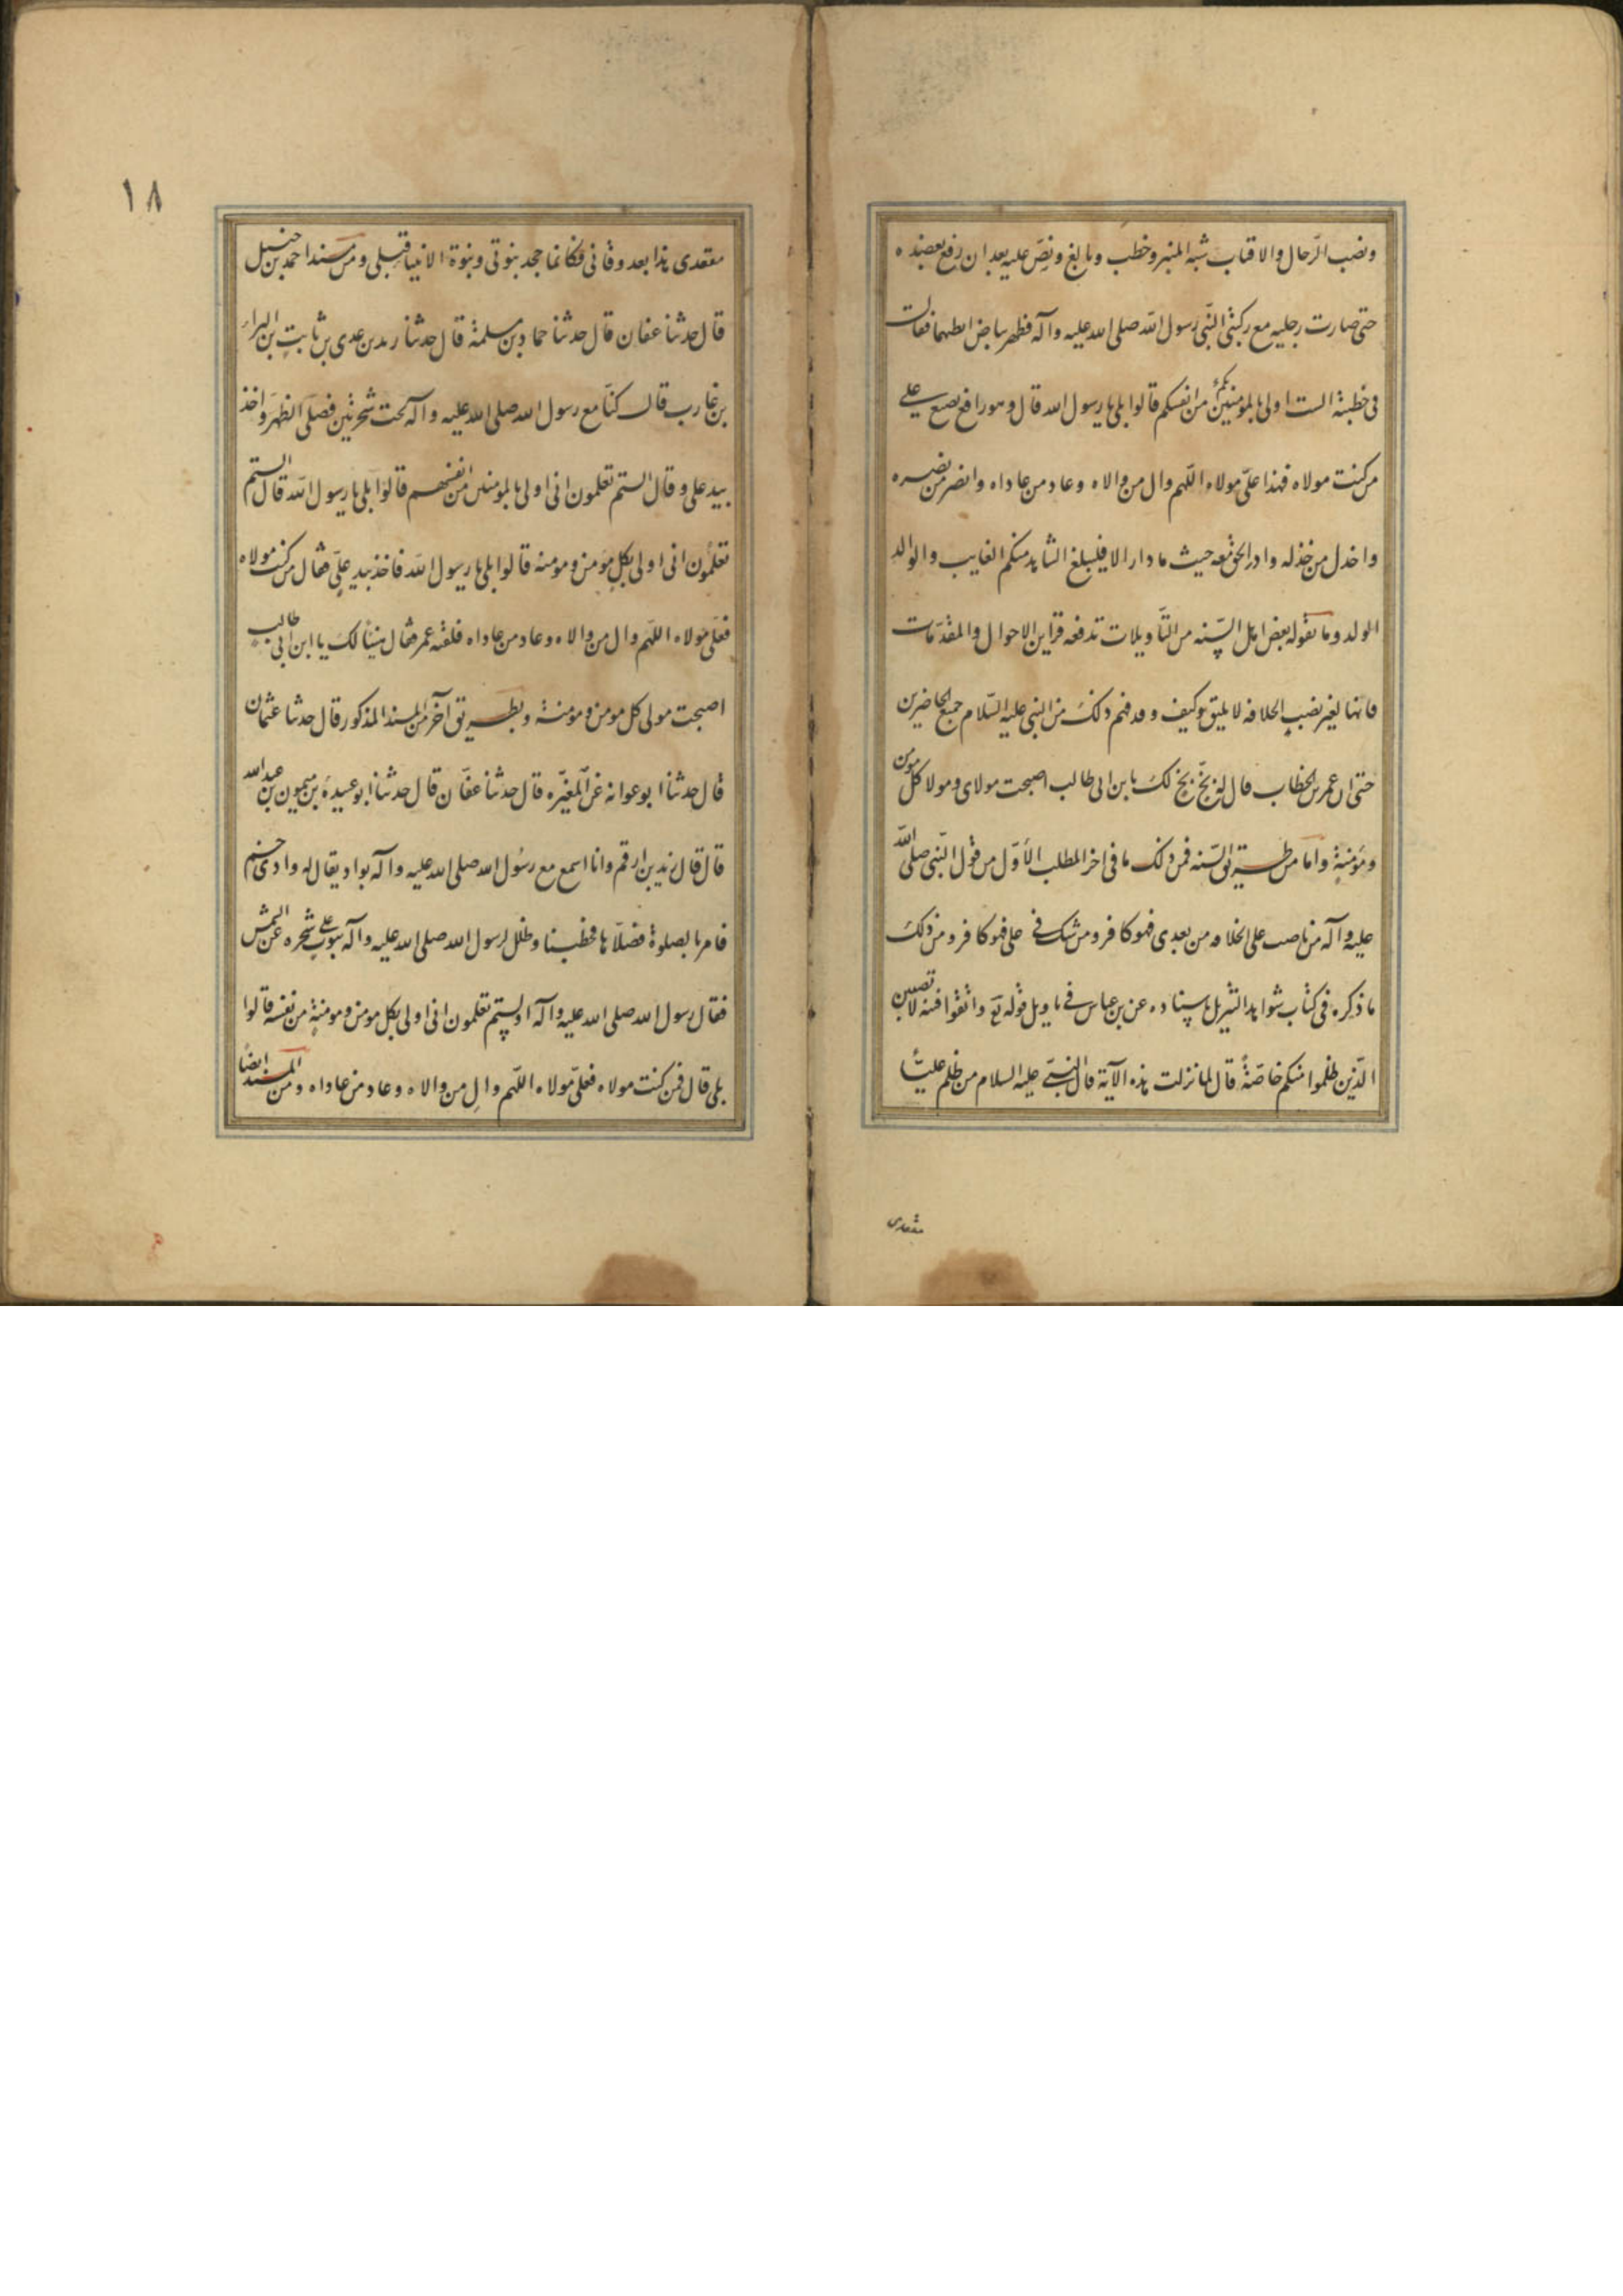 ونصب الرّحال والاقتاب شبه المنبر وخطب وبالغ ونصّ عليه بعد ان رفع بعضده
حتى صارت رجليه مع ركبتى النّبى رسول اللّه صلى الله عليه وآله فظهر بياض ابطيهما فقال
فى خطبته الست اولى بالمومنين منكم من انفسكم قالوا بلى يا رسول الله قال وهو رافع بضبع على
من كنت مولاه فهذا علىّ مولاه اللّهم وال من والاه وعاد من عاداه وانصر من نصره
واخذل من خذله وادر الحق معه حيث ما دار الا فليبلغ الشاهد منكم الغايب والوالد
الولد وما يقوله بعض اهل السّنه من التّاويلات تدفعه قراين الاحوال والمقدّمات
فانها لغير نصب الخلافه لا يليق وكيف وقد فهم ذلك من النبى عليه السّلام جميع الحاضرين
حتى ان عمر بن الخطاب قال له بخّ بخ لك يا بن ابى طالب اصبحت مولاى ومولا كل مومن
ومؤمنةٍ واما من طريق السّنه فمن ذلك ما فى اخر المطلب الأوّل من قول النّبى صلى اللّه
عليه وآله من ناصب على الخلافه من بعدى فهو كافر ومن شك فى على فهو كافر ومن ذلك
ما ذكره فى كتاب شواهد التنزيل باسناده عن بن عباس فى تاويل قوله تع واتقوا فتنه لا تصيبن
الّذين ظلموا منكم خاصّةً قال لما نزلت هذه الآية قال النبىّ عليه السلام من ظلم عليًّا
مقعدى
١٨
مقعدى هذا بعد وفاتى فكانما جحد بنوتى وبنوة الانبيا قبلى ومن مسند احمد بن حنبل
قال حدثنا عفان قال حدثنا حماد بن سلمة قال حدثنا زيد بن عدى بن ثابت بن البراء
بن عازب قال كنّا مع رسول الله صلى الله عليه وآله تحت شجرتين فصلّى الظهر واخذ
بيد على وقال الستم تعلمون انى اولى بالمومنين من انفسهم قالوا بلى يا رسول اللّه قال الستم
تعلمون انى اولى بكل مؤمن ومومنه قالوا بلى يا رسول اللّه فاخذ بيد علىّ فقال من كنت مولاه
فعلى مولاه اللّهم وال من والاه وعاد من عاداه فلقته عمر فقال هنيئاً لك يا ابن ابى طالب
اصبحت مولى كل مومن ومومنة وبطريق آخر من المسند المذكور قال حدثنا عثمان
قال حدثنا ابو عوانه عن المغيّره قال حدثنا عفّان قال حدثنا ابو عبيدة بن ميمون بن عبد الله
قال قال زيد بن ارقم وانا اسمع مع رسُول الله صلى الله عليه وآله بواد يقال له وادى خم
فامرنا بصلوة فصلّاها فخطبنا وظلل لرسول الله صلى الله عليه وآله بثوب على شجره عن الشمس
فقال رسول الله صلى الله عليه وآله اولستم تعلمون انى اولى بكل مومن ومومنةٍ من نفسه قالوا
بلى قال فمن كنت مولاه فعلىّ مولاه اللّهم والِ من والاه وعاد من عاداه ومن المسند ايضاً